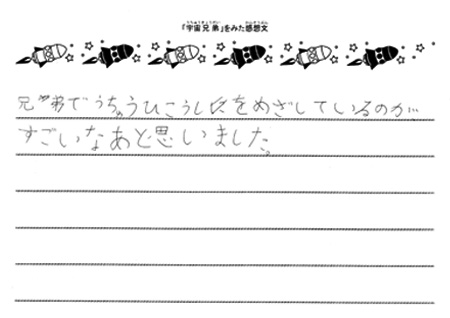 「宇宙兄弟」をみた感想文
兄弟でうちゅうひこうしをめざしているのが、
すごいなあと思いました。